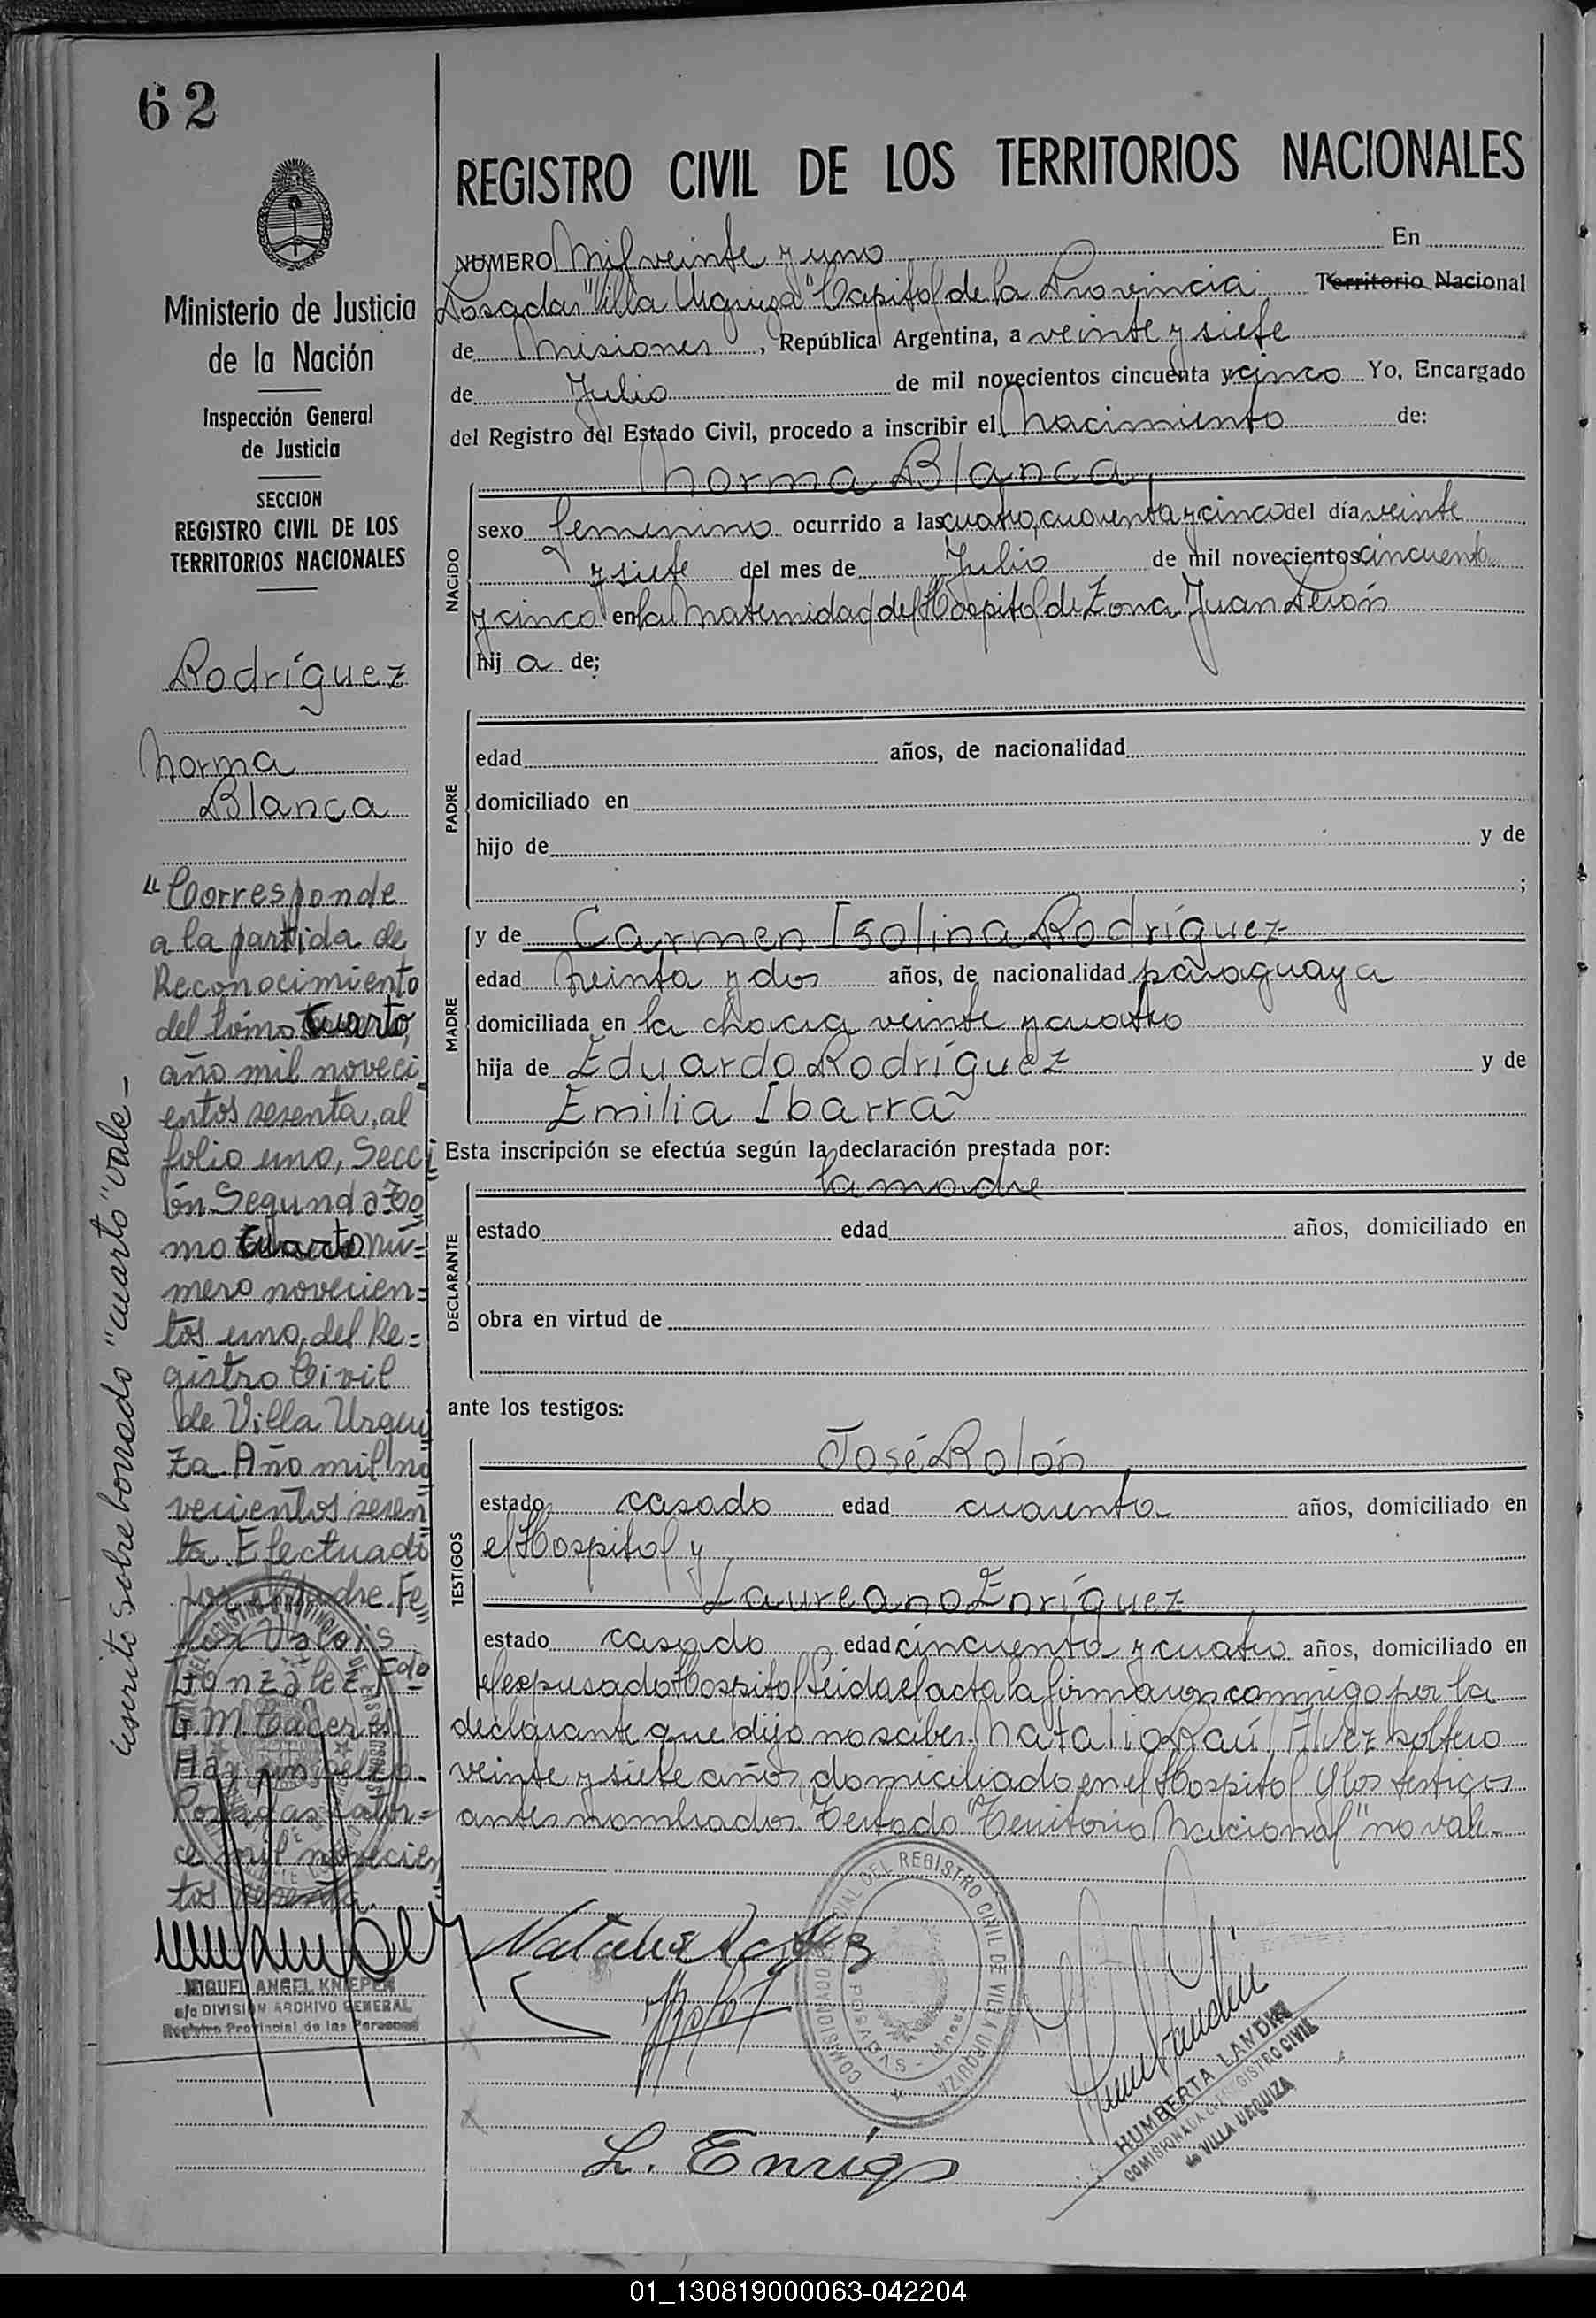 62
Ministerio de Justicia
de la Nación
Inspección General
de Justicia
SECCION
REGISTRO CIVIL DE LOS
TERRITORIOS NACIONALES
Rodríguez
Norma
Blanca
"Corresponde
a la partida de
Reconocimiento
del tomo cuarto,
año mil noveci
entos sesenta, al
folio uno, Secci
ón Segunda To
mo cuarto nú=
mero novecien=
tos uno, del Re=
gistro Civil
de Villa Urqui
za. Año mil no
vecientos sesen
ta. Efectuado
por el Padre Fe
González Fdo
Posadas, cator=
ce mil novecien
tos sesenta.
MIGUEL ANGEL KNIEPER
a/c DIVISION ARCHIVO GENERAL
Registro Provincial de las Personas
inscrito sobre borrado "cuarto" vale-
REGISTRO CIVIL DE LOS TERRITORIOS NACIONALES
NUMERO Mil veinte y uno En
Posadas "Villa Urquiza" Capital de la Provincia Territorio Nacional
de Misiones, República Argentina, a veinte y siete
de Julio de mil novecientos cincuenta y cinco Yo, Encargado
del Registro del Estado Civil, procedo a inscribir el Nacimiento de:
Norma Blanca
NACIDO
sexo femenino ocurrido a las cuatro, cuarenta y cinco del día veinte
y siete del mes de Julio de mil novecientos cincuenta
y cinco en la Maternidad del Hospital de Zona Juan Perón
hij a de;
PADRE
edad años, de nacionalidad
domiciliado en
hijo de y de
;
MADRE
y de Carmen Isolina Rodríguez
edad treinta y dos años, de nacionalidad paraguaya
domiciliada en la chacra veinte y cuatro
hija de Eduardo Rodríguez y de
Emilia Ibarra
Esta inscripción se efectúa según la declaración prestada por:
DECLARANTE
la madre
estado edad años, domiciliado en
obra en virtud de
ante los testigos:
TESTIGOS
José Rolón
estado casado edad cuarenta años, domiciliado en
el Hospital y
Laureano Enríguez
estado casado edad cincuenta y cuatro años, domiciliado en
el expresado Hospital Leida el acta la firmaron conmigo por la
declarante que dijo no saber, Natalio Raúl Alvez soltero
veinte y siete años, domiciliado en el Hospital y los testigos
antes nombrados. Testado "Territorio Nacional" no vale.
L. Enrigs
COMISIONADO DEL REGISTRO CIVIL DE VILLA URQUIZA
POSADAS
HUMBERTA LANDINI
COMISIONADA DEL REGISTRO CIVIL
de VILLA URQUIZA
01_130819000063-042204